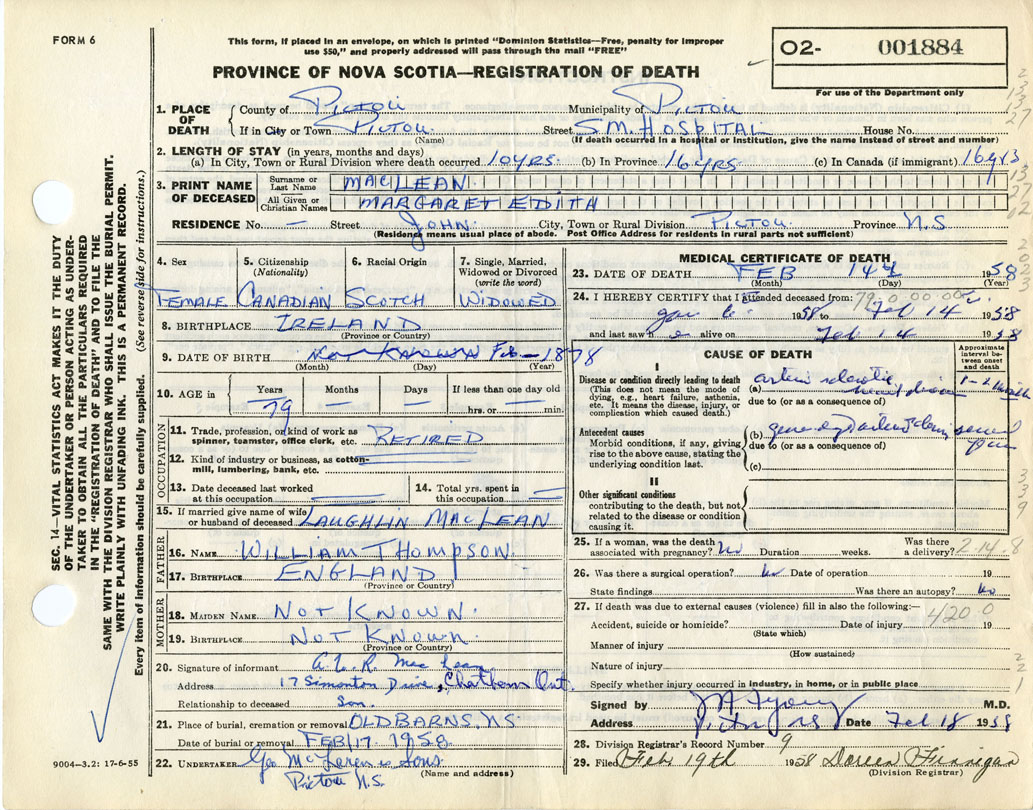 FORM 6
This form, if placed in an envelope, on which is printed "Dominion Statistics—Free, penalty for improper
use $50," and properly addressed will pass through the mail "FREE"
PROVINCE OF NOVA SCOTIA—REGISTRATION OF DEATH
02- 001884
For use of the Department only
1. PLACE OF DEATH County of PICTOU Municipality of PICTOU
If in City or Town PICTOU. Street S.M. HOSPITAL House No.
(Name) (If death occurred in a hospital or institution, give the name instead of street and number)
2. LENGTH OF STAY (in years, months and days)
(a) In City, Town or Rural Division where death occurred 10 yrs. (b) In Province 16 yrs (c) In Canada (if immigrant) 16 yrs
3. PRINT NAME OF DECEASED Surname or Last Name MACLEAN
All Given or Christian Names MARGARET EDITH
RESIDENCE No. — Street JOHN City, Town or Rural Division PICTOU Province N.S
(Residence means usual place of abode. Post Office Address for residents in rural parts not sufficient)
4. Sex 5. Citizenship (Nationality) 6. Racial Origin 7. Single, Married, Widowed or Divorced (write the word)
FEMALE CANADIAN SCOTCH WIDOWED
8. BIRTHPLACE IRELAND
(Province or Country)
9. DATE OF BIRTH Not KNOWN Feb — 1878
(Month) (Day) (Year)
10. AGE in Years Months Days If less than one day old
79 — — hrs. or min.
OCCUPATION
11. Trade, profession, or kind of work as RETIRED
spinner, teamster, office clerk, etc.
12. Kind of industry or business, as cotton-
mill, lumbering, bank, etc.
13. Date deceased last worked at this occupation 14. Total yrs. spent in this occupation
15. If married give name of wife or husband of deceased LAUGHLIN MACLEAN
FATHER
16. NAME WILLIAM THOMPSON
17. BIRTHPLACE ENGLAND
(Province or Country)
MOTHER
18. MAIDEN NAME NOT KNOWN
19. BIRTHPLACE NOT KNOWN
(Province or Country)
20. Signature of informant A. L. R. MacLean
Address 17 Simonton Drive, Chatham Ont.
Relationship to deceased Son.
21. Place of burial, cremation or removal OLD BARNS, NS
Date of burial or removal FEB 17. 1958
22. UNDERTAKER Geo McLaren & Sons
Pictou N.S. (Name and address)
9004—3.2: 17-6-55
MEDICAL CERTIFICATE OF DEATH
23. DATE OF DEATH FEB 14th 1958
(Month) (Day) (Year)
24. I HEREBY CERTIFY that I attended deceased from:
Jan 1958 to Feb 14 1958
and last saw h e alive on Feb 14 1958
CAUSE OF DEATH
Approximate interval between onset and death
I
Disease or condition directly leading to death
(This does not mean the mode of dying, e.g., heart failure, asthenia, etc. It means the disease, injury, or complication which caused death.)
(a)
due to (or as a consequence of)
Antecedent causes
Morbid conditions, if any, giving rise to the above cause, stating the underlying condition last.
(b) several years
due to (or as a consequence of)
(c)
II
Other significant conditions
contributing to the death, but not related to the disease or condition causing it.
25. If a woman, was the death associated with pregnancy? No Duration weeks. Was there a delivery?
2-14-8
26. Was there a surgical operation? No Date of operation 19
State findings Was there an autopsy? No
27. If death was due to external causes (violence) fill in also the following:—
420.0
Accident, suicide or homicide? Date of injury 19
(State which)
Manner of injury
(How sustained)
Nature of injury
Specify whether injury occurred in industry, in home, or in public place
Signed by M.D.
Address Pictou NS Date Feb 18 1958
28. Division Registrar's Record Number 9
29. Filed Feb 19th 1958 Doreen Finnigan
(Division Registrar)
SEC. 14—VITAL STATISTICS ACT MAKES IT THE DUTY
OF THE UNDERTAKER OR PERSON ACTING AS UNDER-
TAKER TO OBTAIN ALL THE PARTICULARS REQUIRED
IN THE "REGISTRATION OF DEATH" AND TO FILE THE
SAME WITH THE DIVISION REGISTRAR WHO SHALL ISSUE THE BURIAL PERMIT.
WRITE PLAINLY WITH UNFADING INK. THIS IS A PERMANENT RECORD.
Every item of information should be carefully supplied. (See reverse side for instructions.)